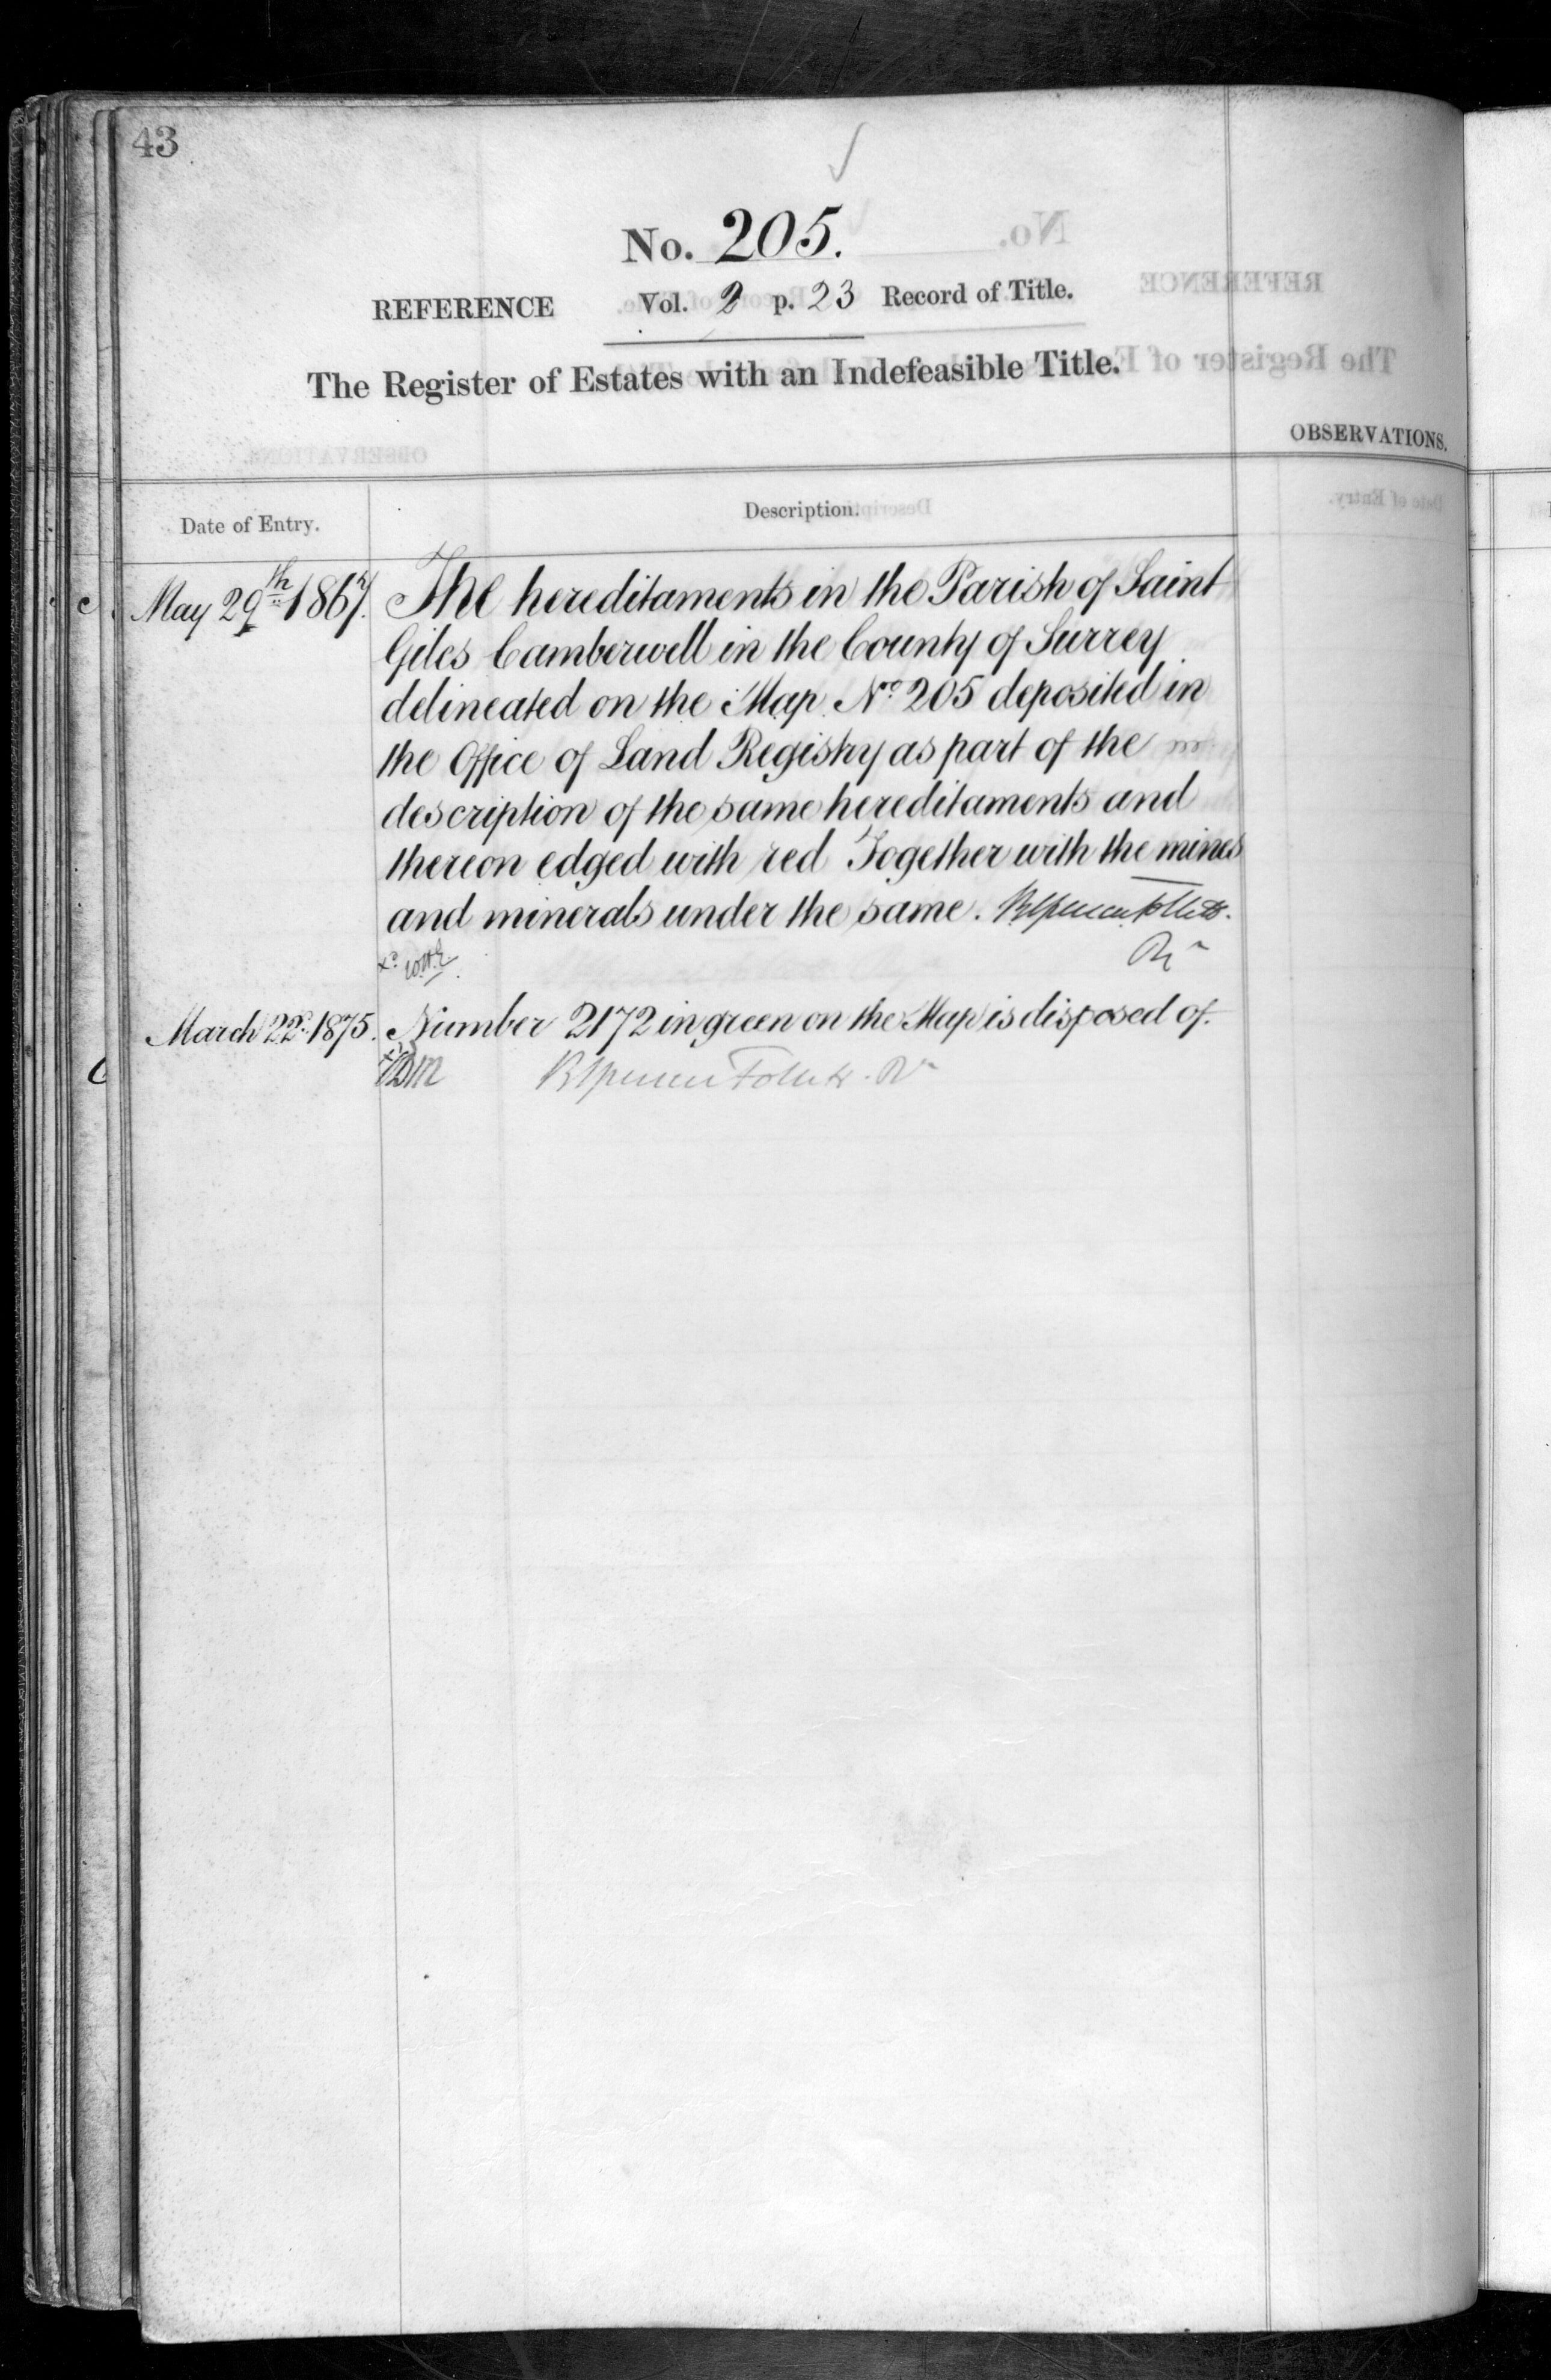 43
No. 205.
REFERENCE Vol. 2 p. 23 Record of Title.
The Register of Estates with an Indefeasible Title.
OBSERVATIONS.
Date of Entry.
Description.
May 29th 1867. The hereditaments in the Parish of Saint
Giles Camberwell in the County of Surrey
delineated on the Map No 205 deposited in
the Office of Land Registry as part of the
description of the same hereditaments and
thereon edged with red Together with the mines
and minerals under the same.
March 22d 1875. Number 2172 in green on the Map is disposed of.